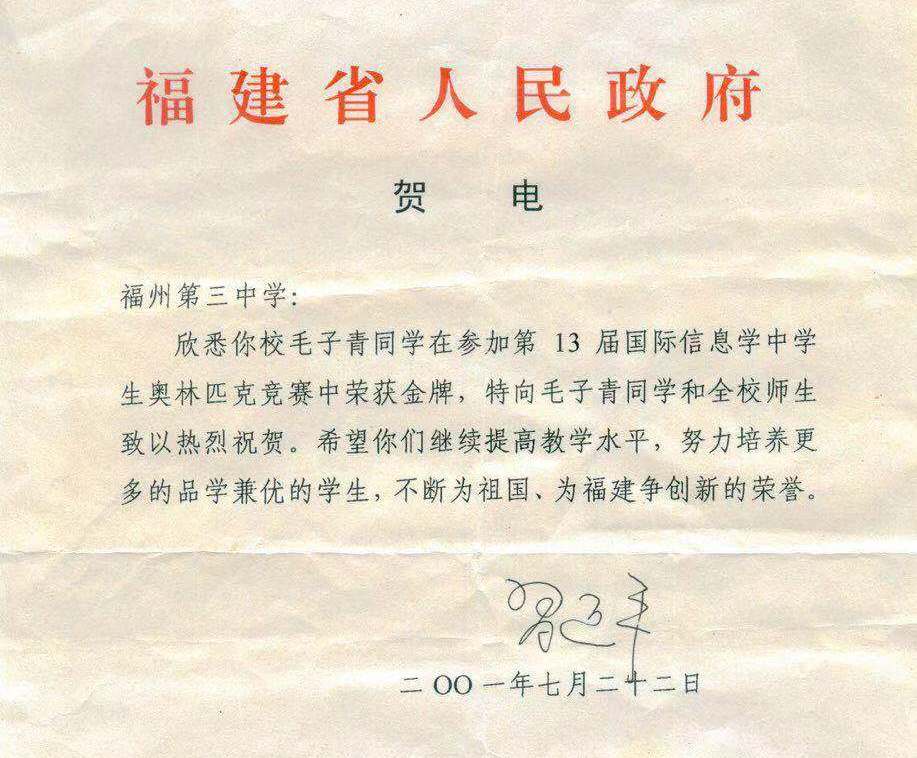 福建省人民政府
贺 电
福州第三中学：
欣悉你校毛子青同学在参加第 13 届国际信息学中学
生奥林匹克竞赛中荣获金牌，特向毛子青同学和全校师生
致以热烈祝贺。希望你们继续提高教学水平，努力培养更
多的品学兼优的学生，不断为祖国、为福建争创新的荣誉。
习近平
二〇〇一年七月二十二日